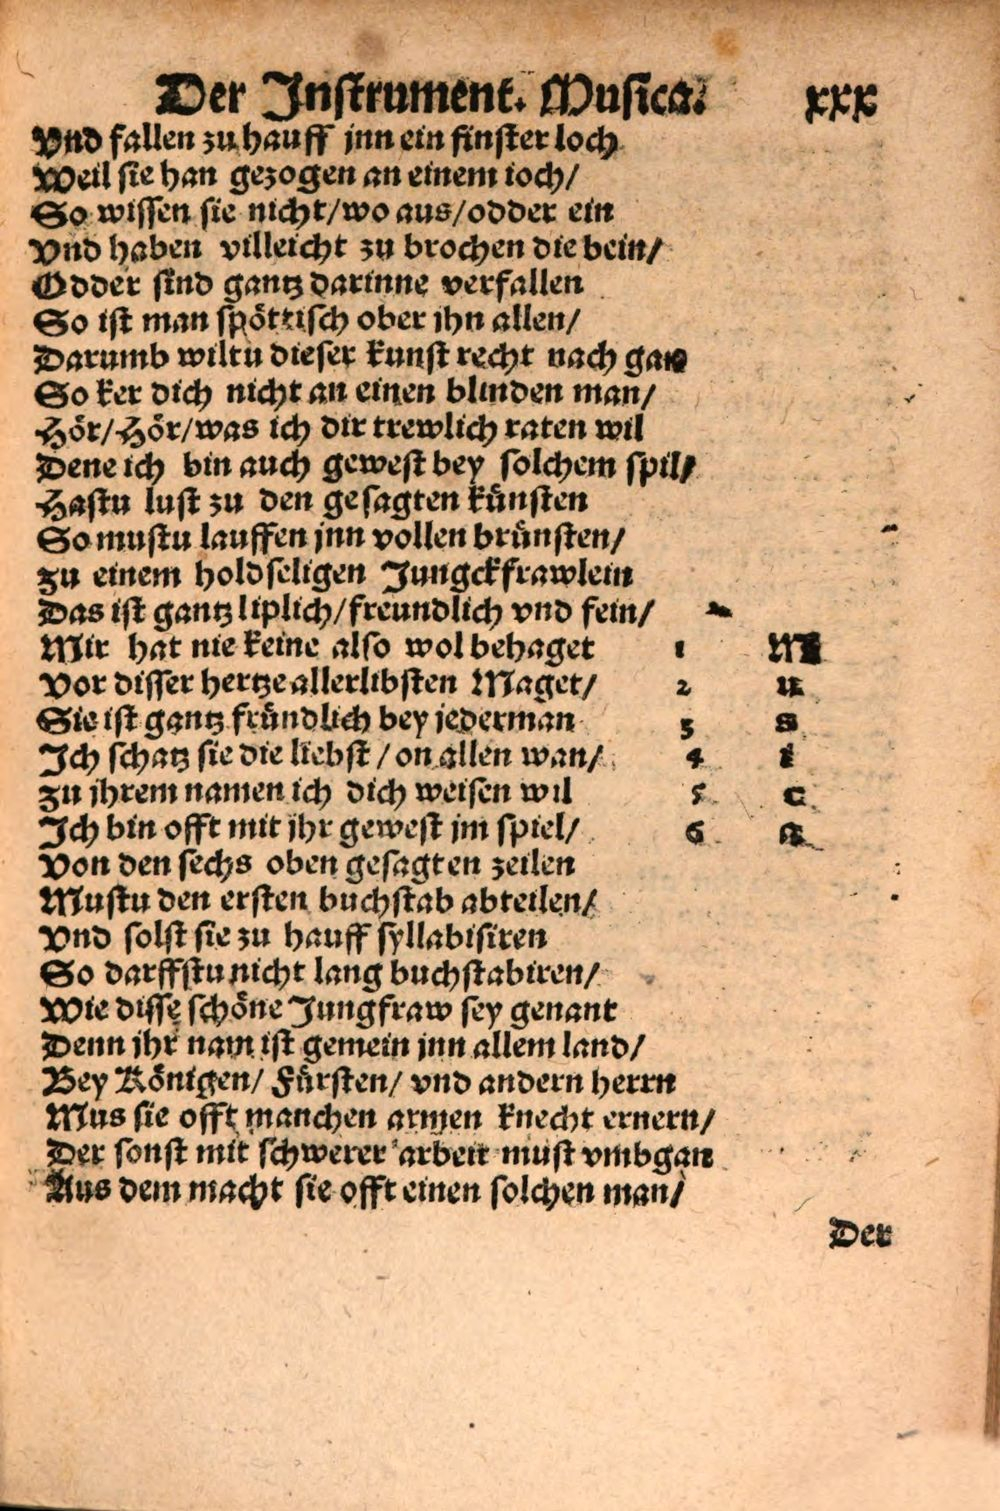 Der Instrument. Musica. xxx
Vnd fallen zu hauff jnn ein finster loch
Weil sie han gezogen an einem ioch/
So wissen sie nicht/wo aus/odder ein
Vnd haben villeicht zu brochen die bein/
Odder sind gantz darinne verfallen
So ist man spöttisch ober jhn allen/
Darumb wiltu dieser kunst recht nach gan
So ker dich nicht an einen blinden man/
Hör/Hör/was ich dir trewlich raten wil
Dene ich bin auch gewest bey solchem spil/
Hastu lust zu den gesagten künsten
So mustu lauffen jnn vollen brünsten/
zu einem holdseligen Jungckfrawlein
Das ist gantz liplich/freundlich vnd fein/
Mir hat nie keine also wol behaget 1 M
Vor disser hertze allerlibsten Maget/ 2 u
Sie ist gantz fründlich bey jederman 3 s
Ich schatz sie die liebst/on allen wan/ 4 i
zu jhrem namen ich dich weisen wil 5 c
Ich bin offt mit jhr gewest jm spiel/ 6 a
Von den sechs oben gesagten zeilen
Mustu den ersten buchstab abteilen/
Vnd solst sie zu hauff syllabisiren
So darffstu nicht lang buchstabiren/
Wie disse schöne Jungfraw sey genant
Denn jhr nam ist gemein jnn allem land/
Bey Königen/ Fürsten/ vnd andern herrn
Mus sie offt manchen armen knecht ernern/
Der sonst mit schwerer arbeit must vmbgan
Aus dem macht sie offt einen solchen man/
Der